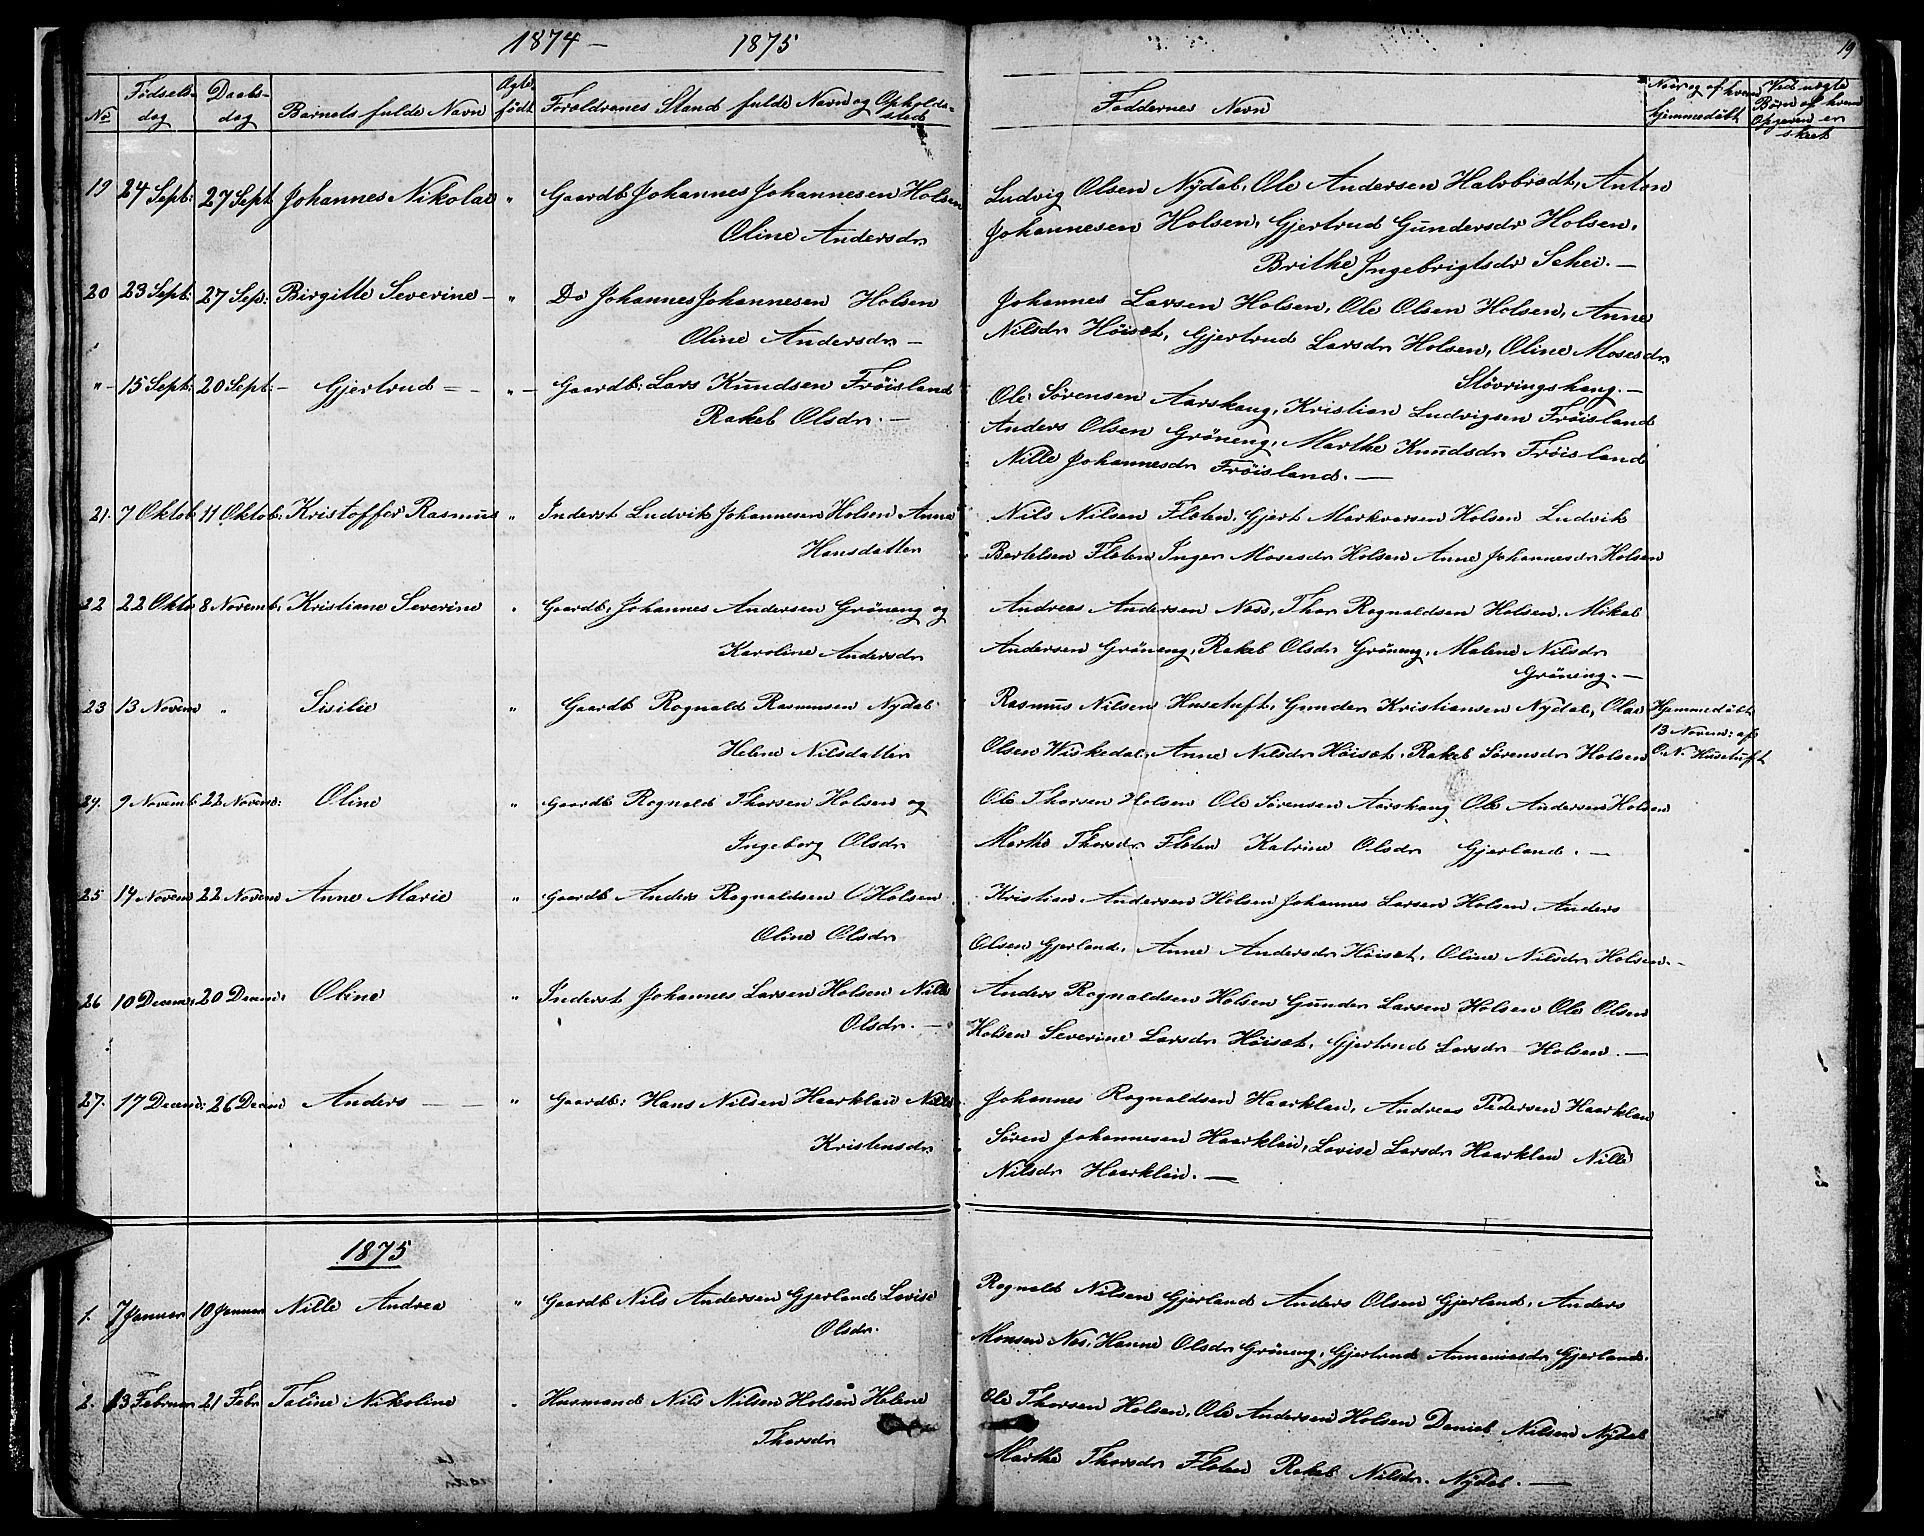 1874 — 1875
19
No Fødsels-dag Daabs-dag Barnets fulde Navn Ægte født Forældrenes Stand fulde Navn og Opholds-sted Faddernes Navn Naar og af hvem hjemmedøbt Ved uægte Børn af hvem Opgaven er skeet
19 24 Sept: 27 Sept Johannes Nikolai " Gaardb Johannes Johannesen Holsen Ludvig Olsen Nydal, Ole Andersen Halvbrødt, Anton
Oline Andersdr Johannesen Holsen, Gjertrud Gundersdr Holsen,
Brithe Ingebrigtsdr Schei. —
20 23 Sept: 27 Sep: Birgitte Severine — " Do Johannes Johannesen Holsen Johannes Larsen Holsen, Ole Olsen Holsen, Anne
Oline Andersdr — Nilsdr Höiset, Gjertrud Larsdr Holsen, Oline Mosesdr
Stövringshaug. —
" — 15 Sept: 20 Sept: — Gjertrud — " — Gaardb: Lars Knudsen Fröisland Ole Sörensen Aarskaug, Kristian Ludvigsen Fröisland
Rakel Olsdr. — Anders Olsen Gröneng, Marthe Knudsdr Fröisland
Nille Johannesdr Fröisland. —
21. 7 Oktob 11 Oktob: Kristoffer Rasmus " Inderst Ludvik Johannesen Holsen Anna Nils Nilsen Floten, Gjert Markvarsen Holsen Ludvik
Hansdatter Bertelsen Floten Inger Mosesdr Holsen Anne Johannesdr Holsen
22 22 Okto 8 Novemb: Kristiane Severine " Gaardb, Johannes Andersen Gröneng og Andreas Andersen Nass, Thor Rognaldsen Holsen, Mikal
Karoline Andersdr Andersen Gröneng, Rakel Olsdr Gröneng, Malene Nilsdr
Gröning. —
23 13 Novem " Sisilie " Gaardb Rognald Rasmussen Nydal Rasmus Nilsen Husetuft, Gunder Kristiansen Nydal, Olai Hjemmedöbt
Helene Nilsdatter Olsen Viskedal, Anne Nilsdr Höiset, Rakel Sörensdr Holsen 13 Novem: af O. N. Husetuft
24. 9 Novemb 22 Novem: Oline " Gaardb Rognald Thorsen Holsen og Ole Thorsen Holsen Ole Sörensen Aarskaug Ole Andersen Holsen
Ingeborg Olsdr Marthe Thorsdr Floten Katrine Olsdr Gjerland. —
25 14 Novem 22 Novem Anne Marie " Gaardb Anders Rognaldsen Holsen Kristian Andersen Holsen Johannes Larsen Holsen Anders
Oline Olsdr Olsen Gjerland, Anne Andersdr Höiset, Oline Nilsdr Holsen. —
26 10 Decem: 20 Decem: Oline " Inderst Johannes Larsen Holsen Nille Anders Rognaldsen Holsen Gunder Larsen Holsen Ole Olsen
Olsdr. — Holsen Severine Larsdr Höiset, Gjertrud Larsdr Holsen. —
27. 17 Decem: 26 Decem Anders — — " Gaardb: Hans Nilsen Haarklau Nille Johannes Rognaldsen Haarklau, Andreas Pedersen Haarklau
Kristensdr Sören Johannesen Haarklau, Lovise Larsdr Haarklau Nille
Nilsdr Haarklau. —
1875
1. 7 Januar 10 Januar Nille Andrea " Gaardb Nils Andersen Gjerland Lovise Rognald Nilsen Gjerland Anders Olsen Gjerland, Anders
Olsdr. Monsen Nes, Hanne Olsdr Gröneng, Gjertrud Annaniasdr Gjerland.
2. 13 Februar 21 Febr Taline Nikoline " Husmand Nils Nilsen Holsen Helene Ole Thorsen Holsen, Ole Andersen Holsen Daniel Nilsen Nydal
Thorsdr Marthe Thorsdr Floten Rakel Nilsdr. Nydal. —